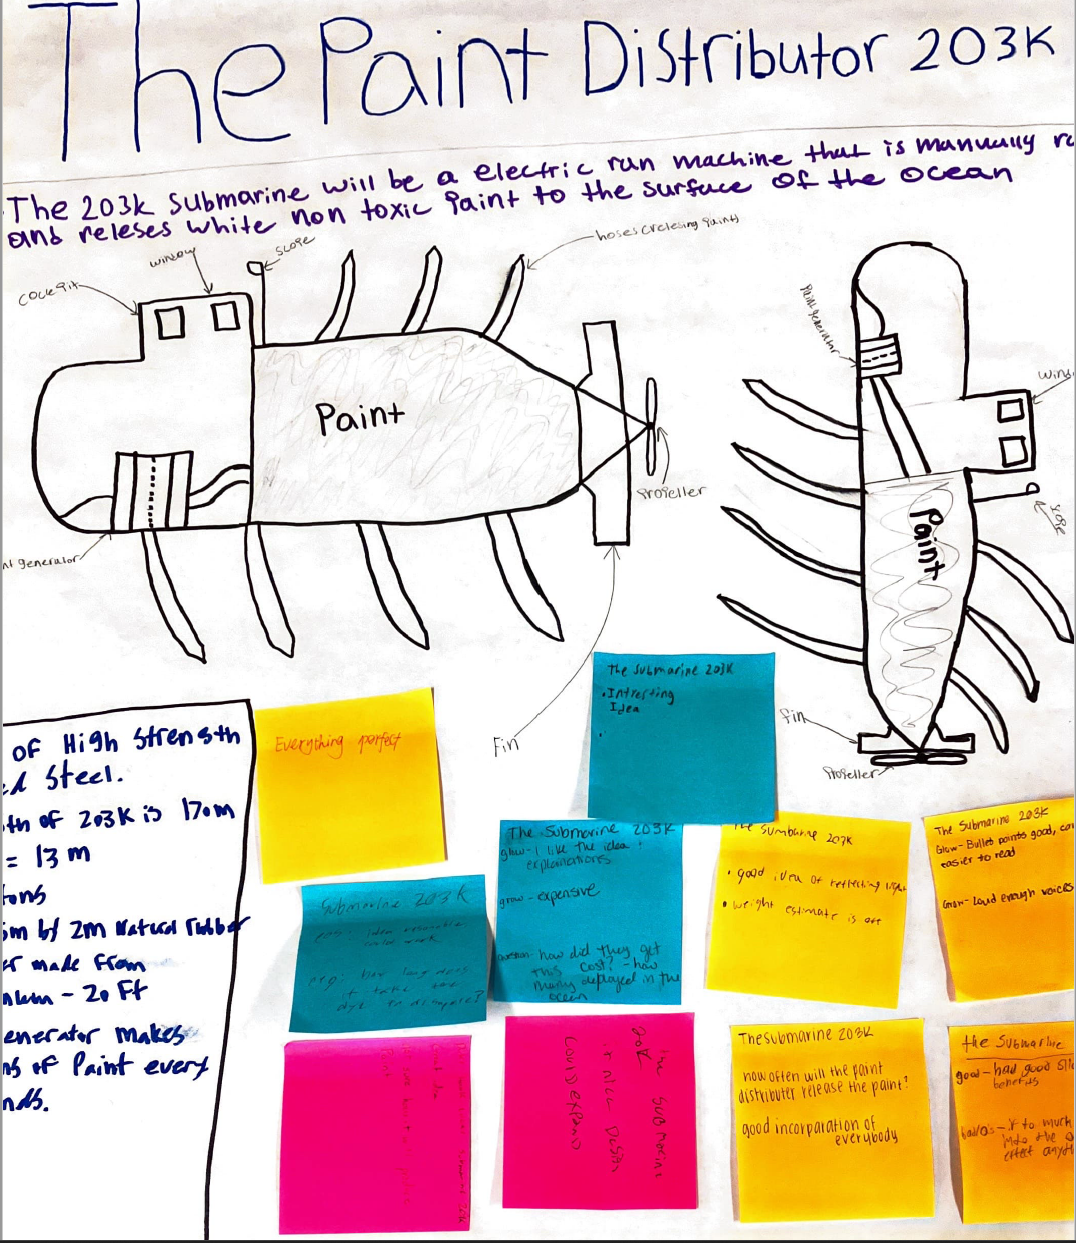 The Paint Distributor 203K
The 203k Submarine will be a electric run machine that is manually
and releses white non toxic Paint to the surface of the ocean
window
scope
hoses (relesing paint)
cockpit
Paint
Propeller
nt generator
Fin
Paint generator
Wind
scope
Paint
Fin
Propeller
of High Strength
Steel.
th of 203K is 170m
= 13 m
tons
5m by 2m Natural Rubber
made from
- 20 Ft
enerator makes
ns of Paint every
nds.
Everything perfect
The Submarine 203K
• Intresting
Idea
•
The Submarine 203K
glow- I like the idea !
explanations
grow - expensive
question- how did they get
this cost? - how
many deployed in the
ocean
The Sumbarine 203K
• good idea of reflecting light
• weight estimate is off
The Submarine 203K
Glow- Bullet points good,
easier to read
Grow- Loud enough voices
Submarine 203K
The Submarine
203K
nice Design
could expand
The submarine 203K
how often will the paint
distributer release the paint?
good incorparation of
everybody
the Submarine
good- had good
benefits
if to much
into the
effect